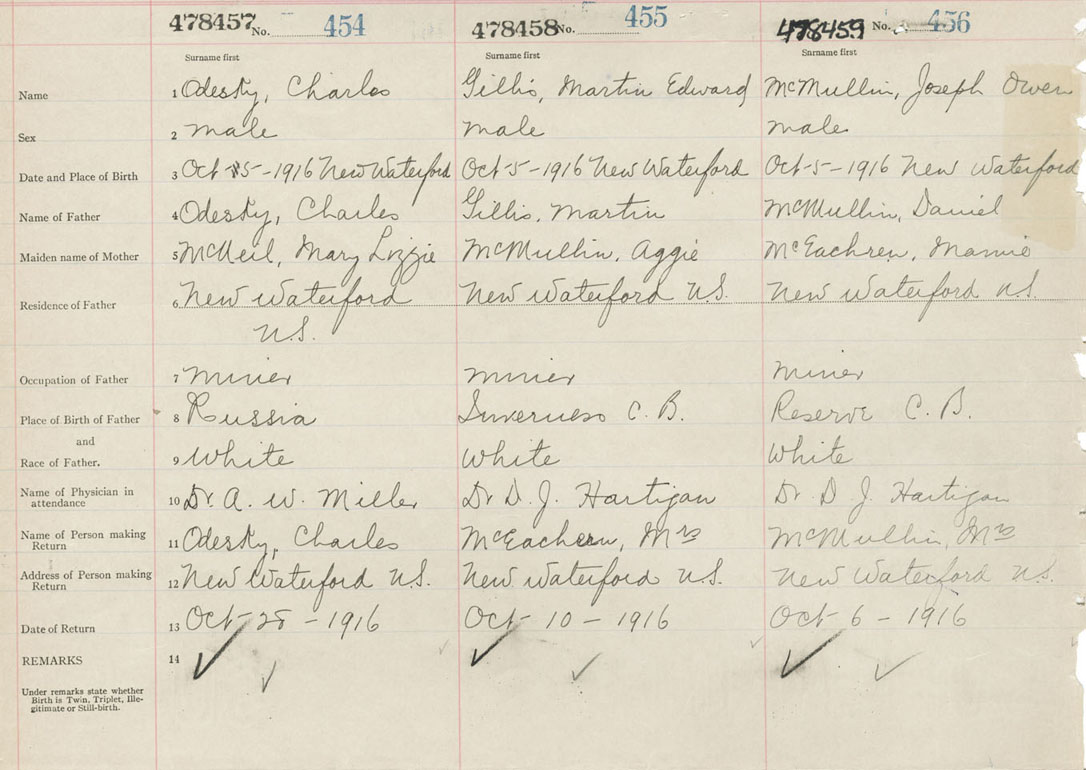 478457 No. 454 478458 No. 455 478459 No. 456
Surname first Surname first Surname first
Name 1 Odesky, Charles Gillis, Martin Edward McMullin, Joseph Owen
Sex 2 male male male
Date and Place of Birth 3 Oct 5-1916 New Waterford Oct-5-1916 New Waterford Oct-5-1916 New Waterford
Name of Father 4 Odesky, Charles Gillis, Martin McMullin, Daniel
Maiden name of Mother 5 McNeil, Mary Lizzie McMullin, Aggie McEachren, Mamie
Residence of Father 6 New Waterford New Waterford N.S. New Waterford N.S.
N.S.
Occupation of Father 7 miner miner miner
Place of Birth of Father 8 Russia Inverness C.B. Reserve C.B.
and
Race of Father. 9 White White White
Name of Physician in attendance 10 Dr. A. W. Miller Dr D. J. Hartigan Dr. D J. Hartigan
Name of Person making Return 11 Odesky, Charles McEachern, Mrs McMullin, Mrs
Address of Person making Return 12 New Waterford N.S. New Waterford N.S. New Waterford N.S.
Date of Return 13 Oct-28-1916 Oct-10-1916 Oct-6-1916
REMARKS 14
Under remarks state whether
Birth is Twin, Triplet, Ille-
gitimate or Still-birth.